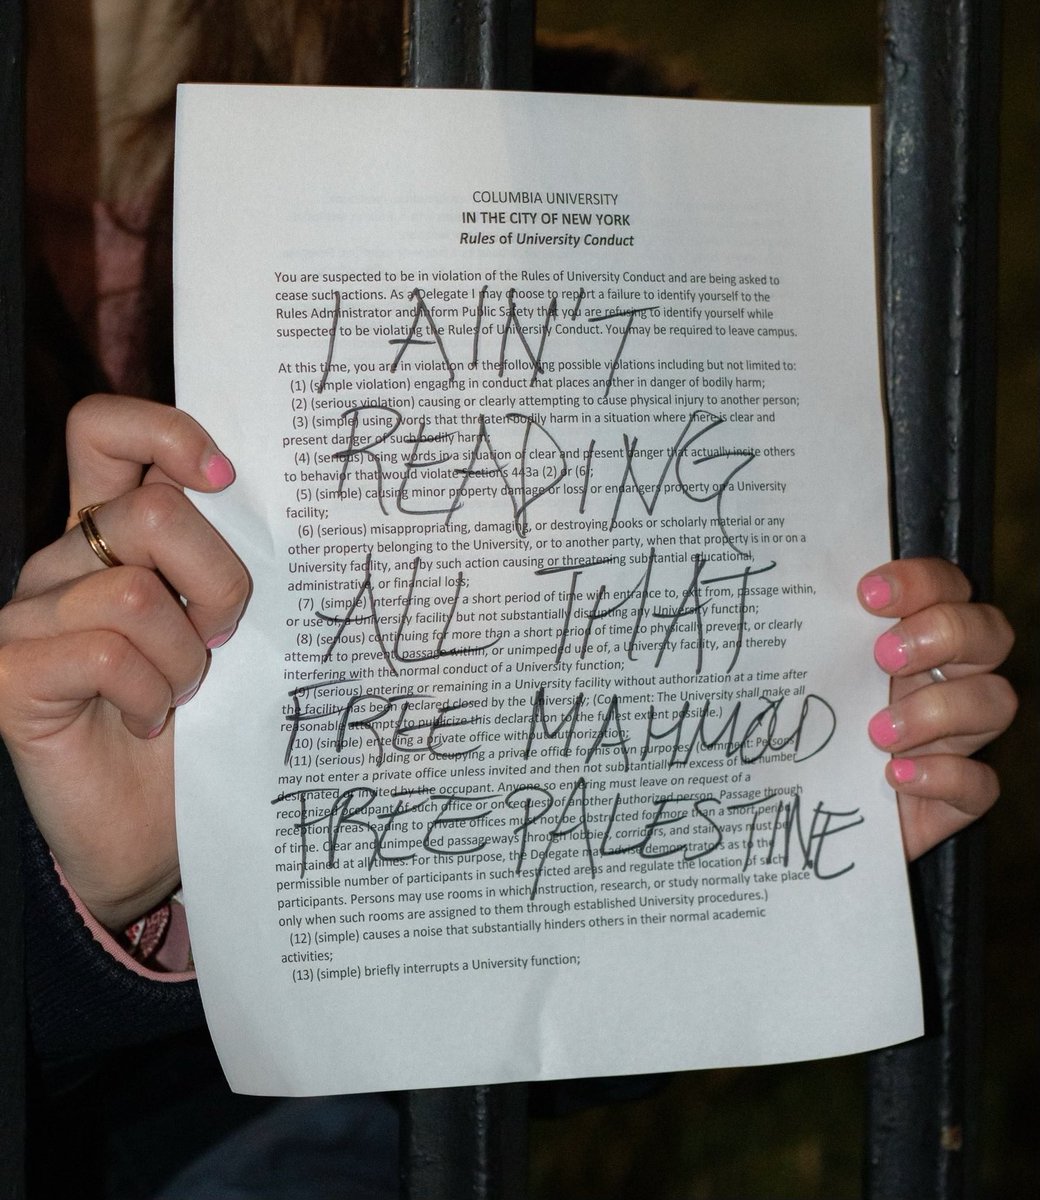 COLUMBIA UNIVERSITY
IN THE CITY OF NEW YORK
Rules of University Conduct
You are suspected to be in violation of the Rules of University Conduct and are being asked to
cease such actions. As a Delegate I may choose to report a failure to identify yourself to the
Rules Administrator and inform Public Safety that you are refusing to identify yourself while
suspected to be violating the Rules of University Conduct. You may be required to leave campus.
At this time, you are in violation of the following possible violations including but not limited to:
(1) (simple violation) engaging in conduct that places another in danger of bodily harm;
(2) (serious violation) causing or clearly attempting to cause physical injury to another person;
(3) (simple) using words that threaten bodily harm in a situation where there is clear and
present danger of such bodily harm;
(4) (serious) using words in a situation of clear and present danger that actually incite others
to behavior that would violate Sections 443a (2) or (6);
(5) (simple) causing minor property damage or loss, or endangers property on a University
facility;
(6) (serious) misappropriating, damaging, or destroying books or scholarly material or any
other property belonging to the University, or to another party, when that property is in or on a
University facility, and by such action causing or threatening substantial educational,
administrative, or financial loss;
(7) (simple) interfering over a short period of time with entrance to, exit from, passage within,
or use of, a University facility but not substantially disrupting any University function;
(8) (serious) continuing for more than a short period of time to physically prevent, or clearly
attempt to prevent, passage within, or unimpeded use of, a University facility, and thereby
interfering with the normal conduct of a University function;
(9) (serious) entering or remaining in a University facility without authorization at a time after
the facility has been declared closed by the University; (Comment: The University shall make all
reasonable attempts to publicize this declaration to the fullest extent possible.)
(10) (simple) entering a private office without authorization;
(11) (serious) holding or occupying a private office for his own purposes; (Comment: Persons
may not enter a private office unless invited and then not substantially in excess of the number
designated or invited by the occupant. Anyone so entering must leave on request of a
recognized occupant of such office or on request of another authorized person. Passage through
reception areas leading to private offices must not be obstructed for more than a short period
of time. Clear and unimpeded passageways through lobbies, corridors, and stairways must be
maintained at all times. For this purpose, the Delegate may advise demonstrators as to the
permissible number of participants in such restricted areas and regulate the location of such
participants. Persons may use rooms in which instruction, research, or study normally take place
only when such rooms are assigned to them through established University procedures.)
(12) (simple) causes a noise that substantially hinders others in their normal academic
activities;
(13) (simple) briefly interrupts a University function;
I AIN'T
READING
ALL THAT
FREE MAHMOUD
FREE PALESTINE